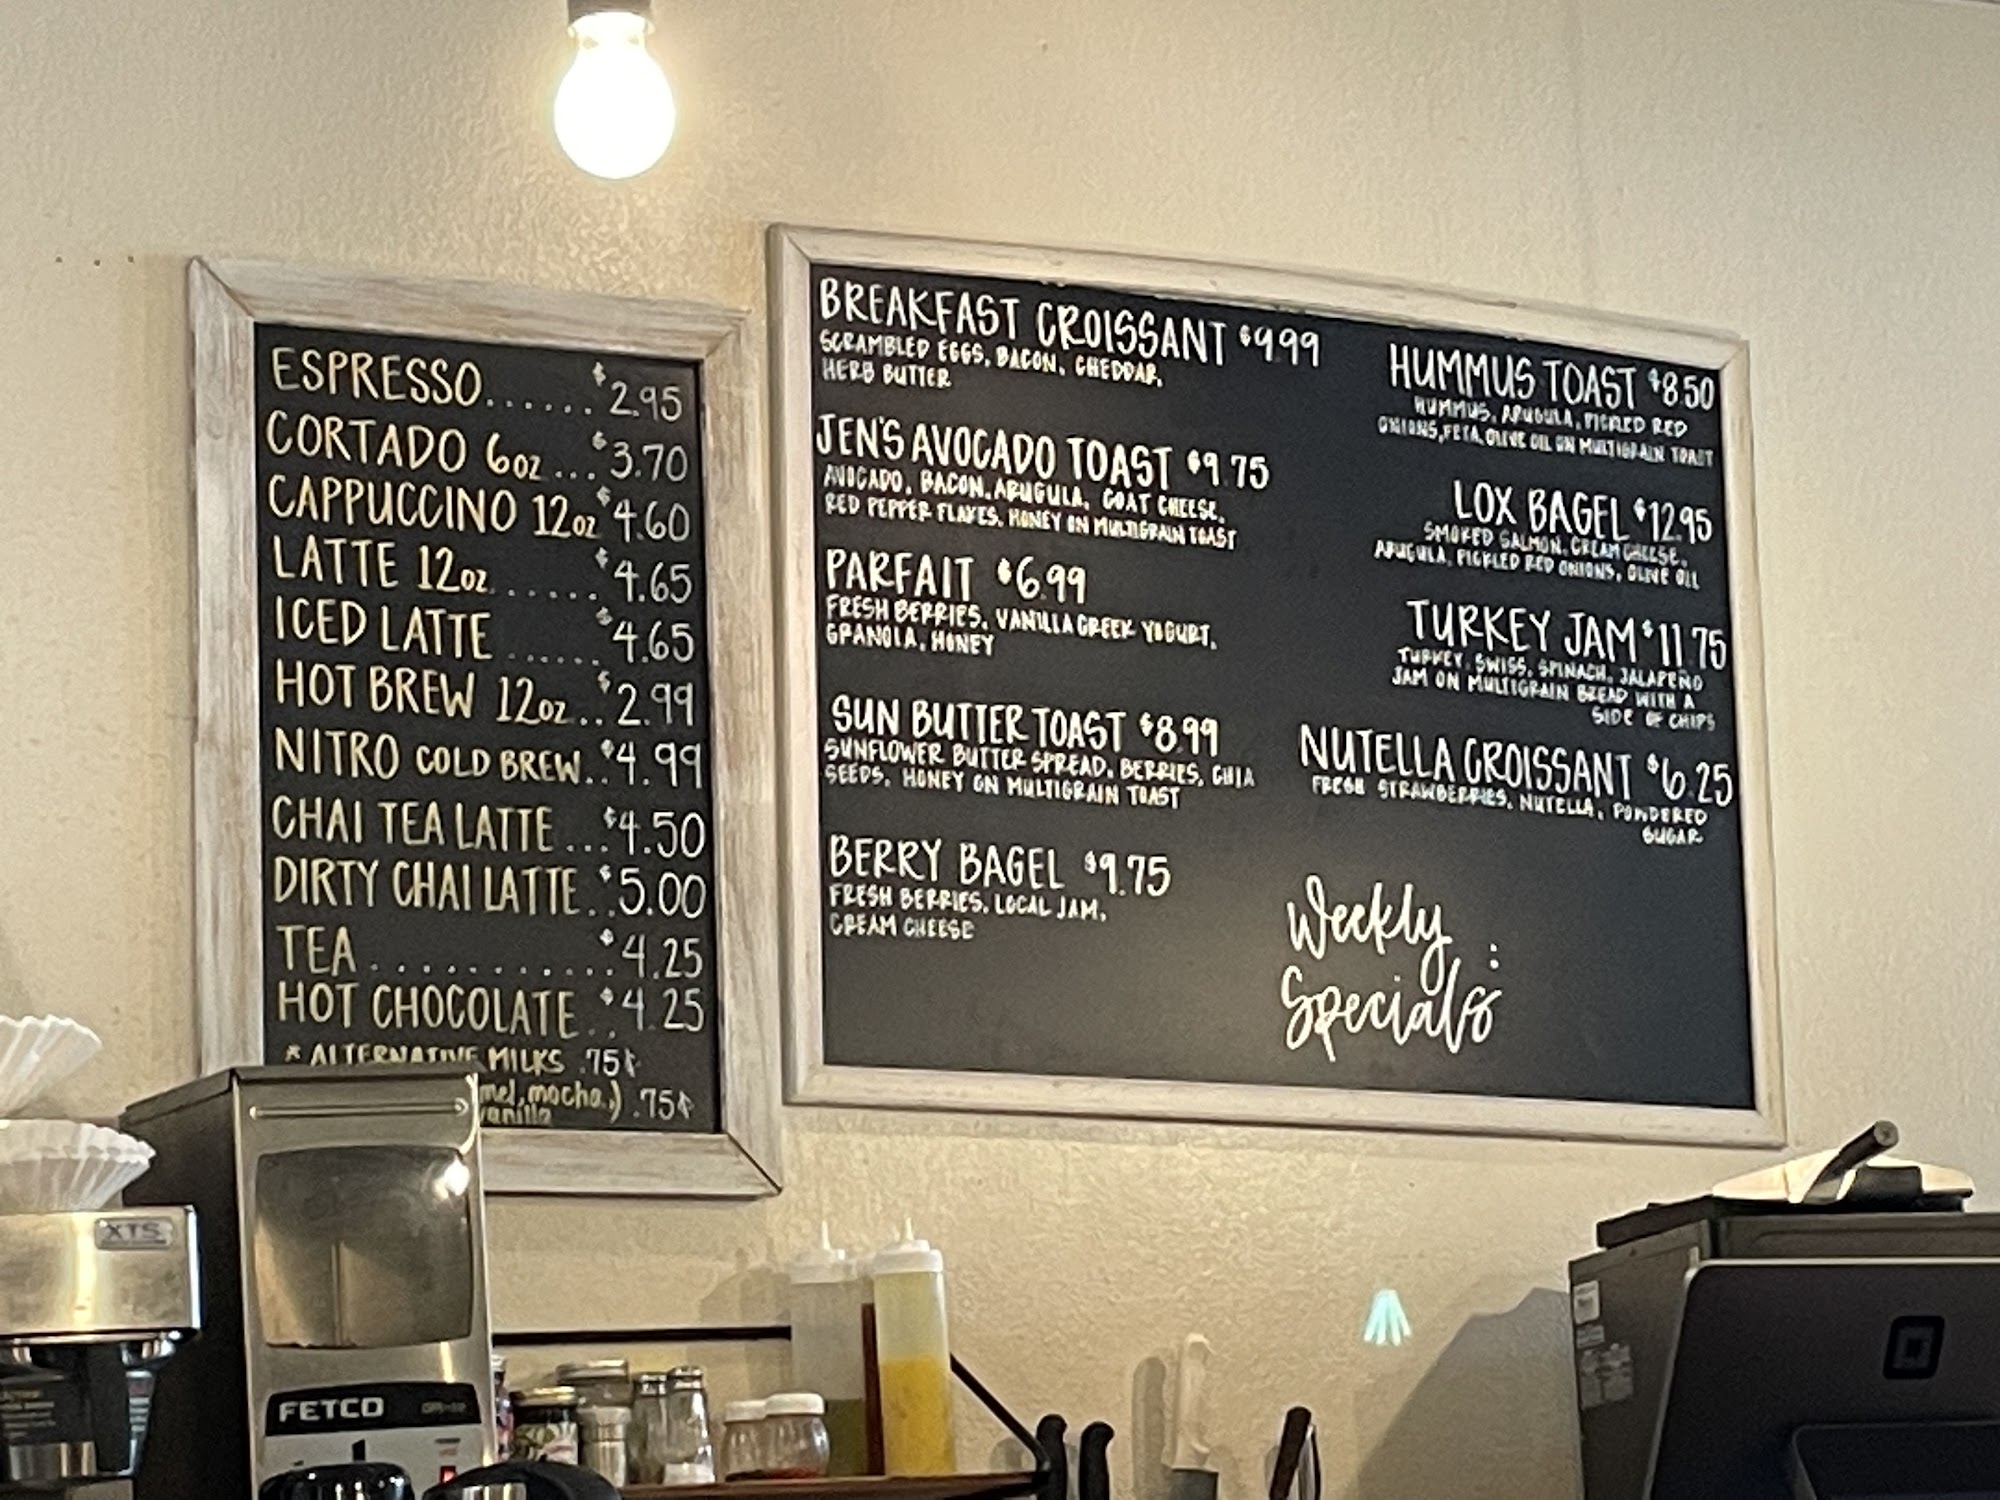 ESPRESSO...... $2.95
CORTADO 6oz ... $3.70
CAPPUCCINO 12oz $4.60
LATTE 12oz...... $4.65
ICED LATTE ...... $4.65
HOT BREW 12oz... $2.99
NITRO COLD BREW.. $4.99
CHAI TEA LATTE ... $4.50
DIRTY CHAI LATTE.. $5.00
TEA ............ $4.25
HOT CHOCOLATE.. $4.25
* ALTERNATIVE MILKS .75¢
mel, mocha,) .75¢
vanilla
BREAKFAST CROISSANT $9.99
SCRAMBLED EGGS, BACON, CHEDDAR,
HERB BUTTER
JEN'S AVOCADO TOAST $9.75
AVOCADO, BACON, ARUGULA, GOAT CHEESE,
RED PEPPER FLAKES, HONEY ON MULTIGRAIN TOAST
PARFAIT $6.99
FRESH BERRIES, VANILLA GREEK YOGURT,
GRANOLA, HONEY
SUN BUTTER TOAST $8.99
SUNFLOWER BUTTER SPREAD, BERRIES, CHIA
SEEDS, HONEY ON MULTIGRAIN TOAST
BERRY BAGEL $9.75
FRESH BERRIES, LOCAL JAM,
CREAM CHEESE
HUMMUS TOAST $8.50
HUMMUS, ARUGULA, PICKLED RED
ONIONS, FETA, OLIVE OIL ON MULTIGRAIN TOAST
LOX BAGEL $12.95
SMOKED SALMON, CREAM CHEESE,
ARUGULA, PICKLED RED ONIONS, OLIVE OIL
TURKEY JAM $11.75
TURKEY, SWISS, SPINACH, JALAPEÑO
JAM ON MULTIGRAIN BREAD WITH A
SIDE OF CHIPS
NUTELLA CROISSANT $6.25
FRESH STRAWBERRIES, NUTELLA, POWDERED
SUGAR
Weekly
Specials:
XTS
FETCO